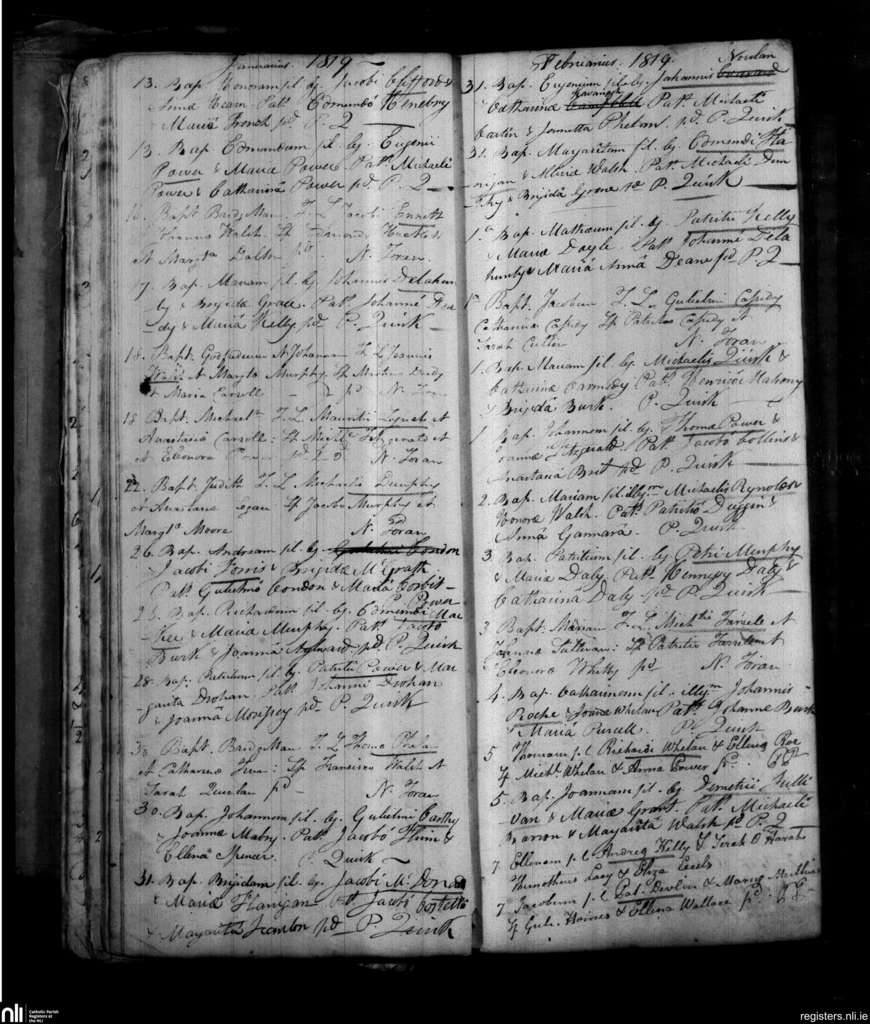 Januarius. 1819
13. Bap. Honoram fil. lg. Jacobi Clifford &
Anna Kean Patt. Edmundo Henebry
Maria French pd P. Q
13 Bap. Edmundum fil. lg. Eugenii
Power & Maria Power. Patt. Michaele
Power & Catharina Power pd P. Q
Bapt Bridgittam F. L. Jacobi Ennett
Joanna Walsh Sp Edmond Hackett
et Margta Dalton pd N. Foran
17. Bap. Mariam fil. lg. Johannis Delahun
ty & Brigida Grace. Patt. Johanne
dy & Maria Kelly pd P. Quirk
18. Bapt. Johannem F L Joannis
et Margta Murphy Sp Martin Brady
et Maria Carroll pd N. Foran
18 Bapt. Michaelem F. L. Mauritii Lynch et
Anastasia Carroll: Sp Michl. Fitzgerald et
et Eleonora pd N. Foran
22. Bapt. Judith F. L. Michaelis Dunphy
et Anastasia Logan Sp Jacobo Murphy et
Margta Moore pd N. Foran
26. Bap. Andream fil. lg. Condon
Jacobi Norris & Brigida McGrath
Patt. Gulielmo Condon & Maria Corbit
Power
Bap. Richardum fil. lg. Edmundi Mac
Kee & Maria Murphy Patt Jacobo
Burk & Joanna Aylward pd P. Quirk
28. Bap. Patritium fil. lg. Patritii Power & Mar
garita Drohan. Patt Johanne Drohan
& Joanna Morrissey pd P. Quirk
30 Bapt. Bridgittam F. L. Thoma Phelan
et Catharina : Sp Francisco Walsh et
Sarah Quinlan pd N. Foran
30. Bap. Johannem fil. lg. Gulielmi Carthy
& Joanna Mabry. Patt. Jacobo Flinn &
Ellena Spencer. P. Quirk
31. Bap. Brigidam fil. lg. Jacobi McDon
& Maria Flanigan Patt Jacobo Costello
& Margarita Scanlon pd P. Quirk
Februarius. 1819. Nowlan
31. Bap. Eugenium fil. lg. Johannis
Kavanagh
& Catharina Campbell Patt. Michaele
Carlin & Jonetta Phelan. pd P. Quirk
31. Bap. Margaritam fil. lg. Edmundi Ha
nigan & Maria Walsh. Patt. Michaele Dem
& Brigida Grane pd P. Quirk
1a Bap. Mathaeum fil. lg. Patritii Kelly
& Maria Doyle. Patt. Johanne Dela
hunty & Maria Anna Deane pd P. Q
1a Bapt. Jacobum F. L. Gulielmi Cassidy
Catharina Cassidy Sp Patritio Cassidy et
Sarah Cullen N. Foran
1. Bap. Mariam fil. lg. Michaelis Quirk &
Catharina Carmody Patt. Henrico Mahony
& Brigida Burk. P. Quirk
1. Bap. Johannem fil. lg. Thoma Power &
Joanna Fitzgerald. Patt. Jacobo Collins &
Anastasia Brit pd P. Quirk
2. Bap. Mariam fil. illgm Michaelis Rynolds &
Honora Walsh. Patt. Patritio Duggin &
Anna Gamara. P. Quirk
3 Bap. Patritium fil. lg. Petri Murphy
& Maria Daly Patt. Hennesy Daly &
Catharina Daly pd P. Quirk
3 Bapt. Mariam F. L. Michlis Farrell et
Johanna Sullivan: Sp Patritio Farrell et
Eleonora Whitty pd N. Foran
4. Bap. Catharinam fil. illgm. Johannis
Roche & Joana Whelan Patt. Johanne Burk
& Maria Purcell. P. Quirk
5 Thomam f. l Richardi Whelan & Ellena Roe
Sp Michl. Whelan & Anna Power pd.
5. Bap. Joannam fil. lg. Demetrii Sulli
van & Maria Grant. Patt. Michaele
Barron & Margarita Walsh pd P. Q
7 Ellenam f. l Andrea Kelly & Sarah O Harah
Thimotheus Lacy & Eliza
7 Jacobum f. l Pat. Devlin & Maria
Sp Gul. Haines & Ellena Wallace pd
nli
Catholic Parish
Registers at
the NLI
registers.nli.ie